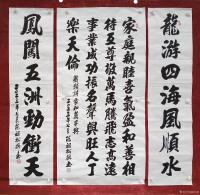 龍游四海風順水
家庭親睦喜氣盈和善相
待互尊敬萬馬騰飛志高遠
事業成功振名聲興旺人丁
樂天倫
鳳闖五洲勁衝天